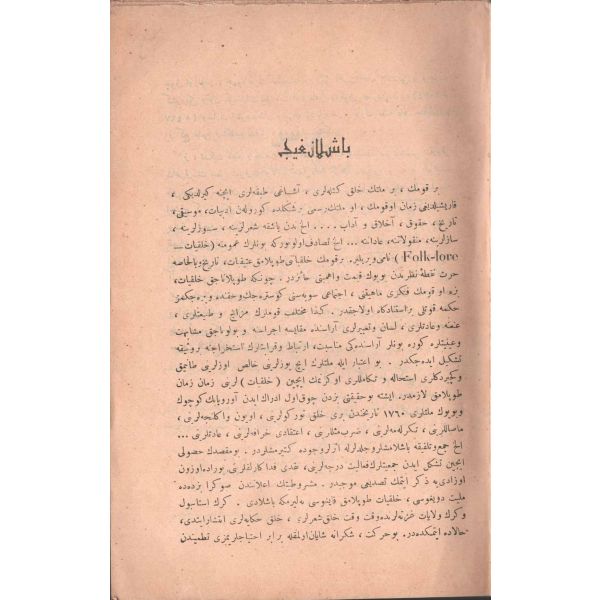 باشلانغیج
بر قومك ، بر ملتك خلق كتله‌لری ، آشاغی طبقه‌لری ایچنه كیرلدیكی ،
قاریشیلدیغی زمان اوقومك ، او ملتك رسمی بر شكلده كورولەن ادبیات، موسیقی ،
تاریخ ، حقوق ، آخلاق و آداب .... الخ دن باشقه شعرلرینه ، سوزلرینه ،
سازلرینه، منقولاتنه، عاداتنه ... الخ تصادف اولونوركه بونلرك عمومنه (خلقیات ــ
Folk-lore) نامی ویریلیر. بر قومك خلقیاتی طوپلامق عتیقیات، تاریخ وبالخاصه
حرث نقطهٔ نظرندن بویوك قیمت واهمیتی حائزدر . چونكه طوپلاناجق خلقیات،
بزه او قومك فكری ماهیتی ، اجتماعی سویه‌سنی كوستره‌جك وحقنده ویره‌جكمز
حكمه قوتلی بر استنادكاه اولاجقدر. كذا مختلف قوملرك مزاج و طبیعتلری ،
عنعنه وعادتلری ، لسان وتعبیرلری آراسنده مقایسه اجراسنه و بولوناجق مشابهت
وعینیتلره كوره بونلر آراسنده‌كی مناسبت، ارتباط وقرابتلرك استخراجنه بر وثیقه
تشكیل ایده‌جكدر . بو اعتبار ایله ملتلرك ایچ یوزلرینی خالص اوزلرینی طانیمق
وكچیردكلری استحاله و تكاملاری اوكرنمك ایچین (خلقیات) لرینی زمان زمان
طوپلامق لازمدر. ایشته بوحقیقتی بزدن چوق اول ادراك ایدن آوروپانك كوچوك
وبویوك ملتلری ١٧٦٠ تاریخندن بری خلق توركولرینی ، اویون واكلنجه‌لرینی ،
ماصاللرینی ، تكرله‌مه‌لرینی ، ضرب مثللرینی ، اعتقادی خرافه‌لرینی ، عادتلرینی ...
الخ جمع وتلفیقه باشلامشلر وجلدلرله اثرلر وجوده كتیرمشلردر . بومقصدك حصولی
ایچین تشكل ایدن جمعیتلرك فعالیت درجه‌لرینی، نقدی فداكارلقلرینی بوراده اوزون
اوزادی‌یه ذكر ایتمك تصدیعی موجبدر . مشروطیتك اعلانندن صوكرا بزده‌ده
ملیت دویغوسی ، خلقیات طوپلامق قایغوسی به‌لیرمكه باشلادی . كرك استانبول
وكرك ولایات غزته‌لرنده وقت وقت خلق شعرلری ، خلق حكایه‌لری انتشار ایتدی،
حالاده ایتمكده‌در. بوحركت ، شكرانه شایان اولمقله برابر احتیاجلریمزی تطمیندن